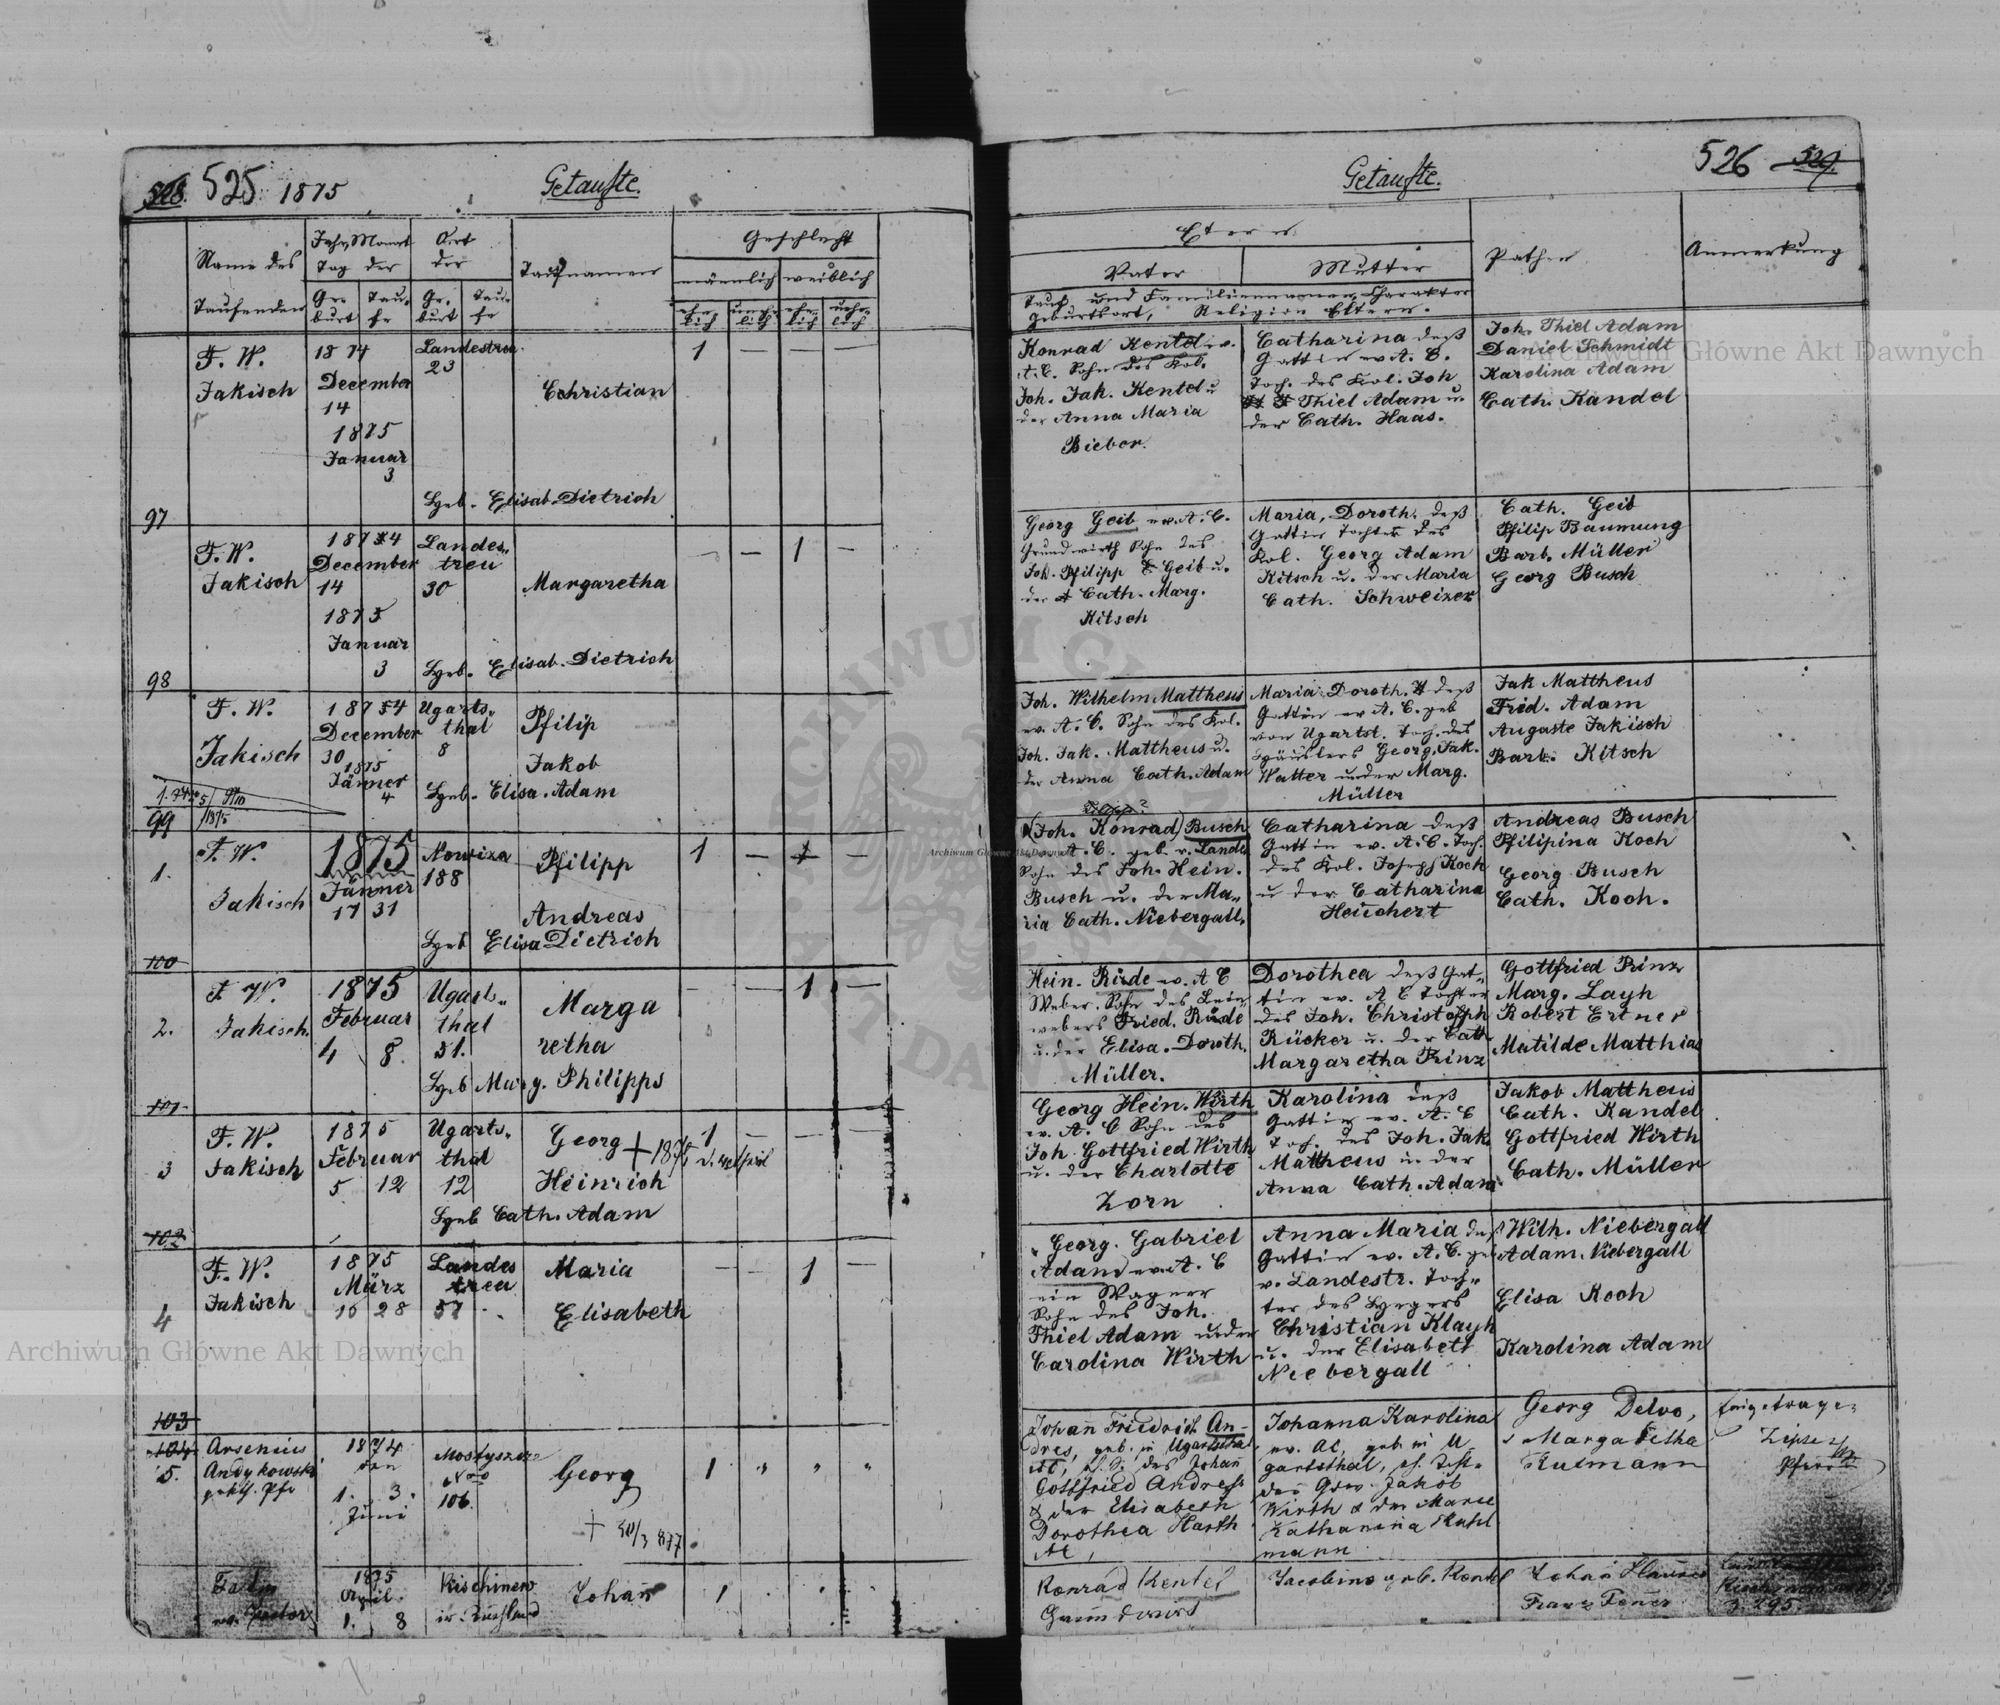 528. 525 1875 Getaufte.
Name des Taufenden
Jahr, Monat Tag der
Geburt Taufe
Ort der
Geburt Taufe
Taufnamen
Geschlecht
männlich weiblich
ehelich unehelich ehelich unehelich
F. W. Jakisch
1874
December
14
1875
Januar
3
Landestreu
23
Christian
1 — — —
Hgeb. Elisab. Dietrich
97
F. W. Jakisch
1874
December
14
1875
Januar
3
Landestreu
30
Margaretha
— — 1 —
Hgeb. Elisab. Dietrich
98
F. W.
Jakisch
1874
December
30
1875
Jänner
4
Ugartsthal
8
Pfilip
Jakob
Hgeb. Elisa. Adam
99
1.
F. W.
Jakisch
1875
Jänner
17 31
Nowiza
188
Pfilipp
Andreas
1 — + —
Hgeb Elisa Dietrich
100
2.
F. W.
Jakisch.
1875
Februar
4 8.
Ugartsthal
51.
Marga
retha
— — 1 —
Hgeb Marg. Philipps
101
3
F. W.
Jakisch
1875
Februar
5 12
Ugartsthal
12
Georg + 1875
Heinrich
1 — — —
Hgeb Cath. Adam
102
4
F. W.
Jakisch
1875
März
10 28
Landes
treu
57
Maria
Elisabeth
— — 1 —
103
104
5.
Arsenius
Andykowski
1874
den
1. 3.
Juni
106.
Georg
1 " " "
1875
April.
1. 8
Kischinew
in Russland
Johañ
1
Getaufte. 526 527.
Eltern
Vater Mutter
Tauf und Familiennamen, Charakter
Geburtsort, Religion Eltern.
Pathen
Anmerkung
Konrad Kentel ev.
A. C. Sohn des Kol.
Joh. Jak. Kentel u
der Anna Maria
Bieber.
Catharina deß
Gattin ev A. C.
Toch. des Kol. Joh
Thiel Adam u.
der Cath. Haas.
Joh. Thiel Adam
Daniel Schmidt
Karolina Adam
Cath. Kandel
Georg Geib ev. A. C.
Grundwirth Sohn des
Joh. Pfilipp Geib u.
der Cath. Marg.
Kitsch
Maria, Doroth. deß
Gattin Tochter des
Kol. Georg Adam
Kitsch u. der Maria
Cath. Schweizer
Cath. Geib
Pfilip Baumung
Barb. Müller
Georg Busch
Joh. Wilhelm Mattheus
ev. A. C. Sohn des Kol.
Joh. Jak. Mattheus u.
der Anna Cath. Adam
Maria Doroth. deß
Gattin ev A. C. geb
von Ugartst. Toch. des
Häuslers Georg Jak.
Walter und der Marg.
Müller
Jak Mattheus
Frid. Adam
Auguste Jakisch
Barb. Kitsch
(Joh. Konrad) Busch
A. C. geb. v. Landes
Sohn des Joh. Hein.
Busch u. der Ma-
ria Cath. Niebergall.
Catharina deß
Gattin ev. A. C. Toch.
des Kol. Joseph Koch
u der Catharina
Heuchert
Andreas Busch
Pfilipina Koch
Georg Busch
Cath. Koch.
Hein. Rüde ev. A C
Weber. Sohn des Lein
webers Fried. Rüde
u. der Elisa. Doroth.
Müller.
Dorothea deß Gat-
tin ev. A C Tochter
des Joh. Christoph
Rücker u. der Cath.
Margaretha Prinz
Gottfried Prinz
Marg. Layh
Robert Ertner
Matilde Matthias
Georg Hein. Wirth
ev. A. C Sohn des
Joh. Gottfried Wirth
u. der Charlotte
Zorn
Karolina deß
Gattin ev. A. C
Toch. des Joh. Jak
Mattheus u. der
Anna Cath. Adam.
Jakob Mattheus
Cath. Kandel
Gottfried Wirth
Cath. Müller
Georg. Gabriel
Adam ev. A. C
ein Wagner
Sohn des Joh.
Thiel Adam und der
Carolina Wirth
Anna Maria deß
Gattin ev. A. C. geb
v. Landestr. Toch-
ter des Hegers
Christian Klayh
u. der Elisabeth
Niebergall
Wilh. Niebergall
Adam. Niebergall
Elisa Koch
Karolina Adam
Johañ Friedrich An-
dres, geb. in Ugartsthal
des Johañ
Gottfried Andres
& der Elisabeth
Dorothea Harth
AC,
Johanna Karolina
ev. AC, geb. in U
gartsthal,
des Jakob
Wirth & der Marie
Katharina Kuhl
mann
Georg Delvo,
Margaretha
Kulmann
Eingetragen
Konrad Kentel
Jacobine geb. Kentel
Archiwum Główne Akt Dawnych
Archiwum Główne Akt Dawnych
Archiwum Główne Akt Dawnych